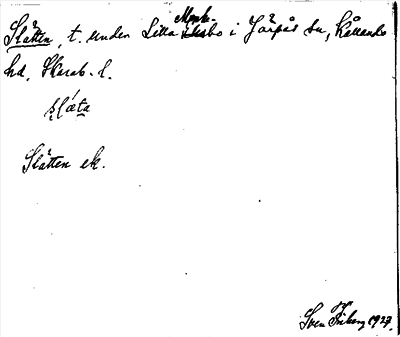 Slätten, t. under Lilla Munkebo i Järpås sn, Kållands
hd, Skarab. l.
slæ̀ta
Slätten ek.
Sven Friberg 1927.